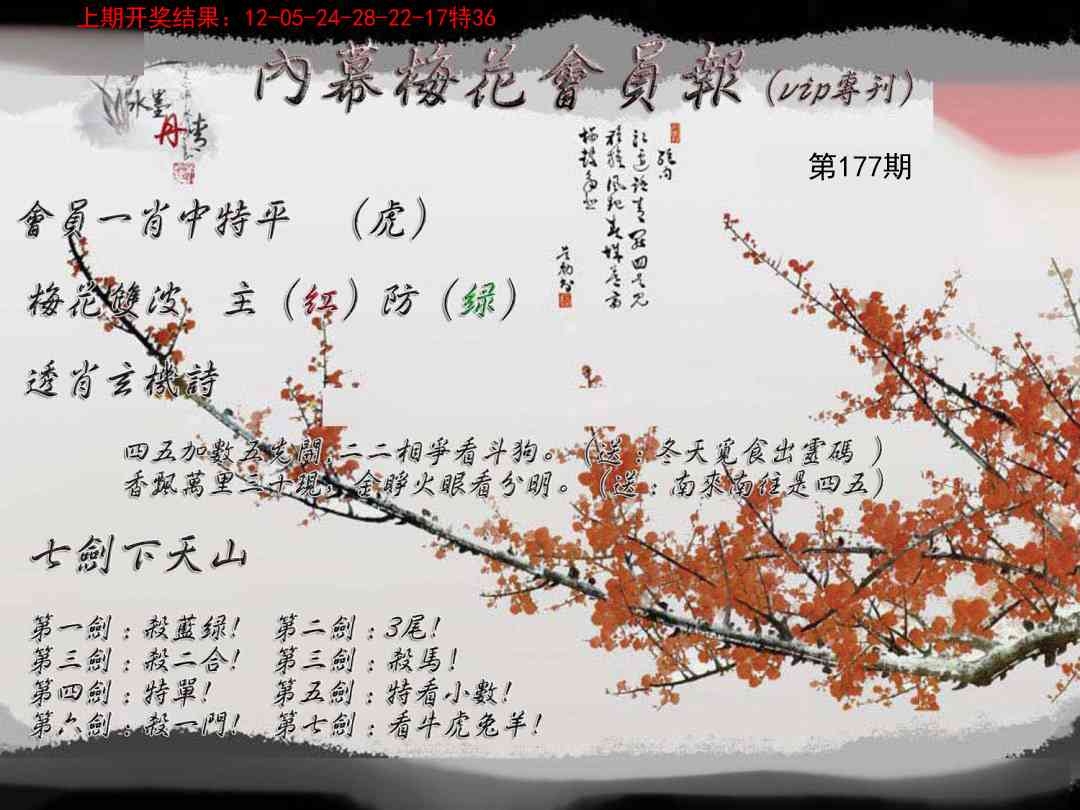 上期开奖结果：12-05-24-28-22-17特36
內幕梅花會員報（vip專刊）
水墨
丹青
第177期
會員一肖中特平　（虎）
梅花雙波　主（红）防（绿）
透肖玄機詩
四五加數五先開,二二相爭看斗狗。（送：冬天覓食出靈碼 ）
香飄萬里三十現，金睜火眼看分明。（送：南來南往是四五）
七劍下天山
第一劍：殺藍绿!　第二劍：3尾!
第三劍：殺二合!　第三劍：殺馬!
第四劍：特單!　第五劍：特看小數!
第六劍：殺一門!　第七劍：看牛虎兔羊!